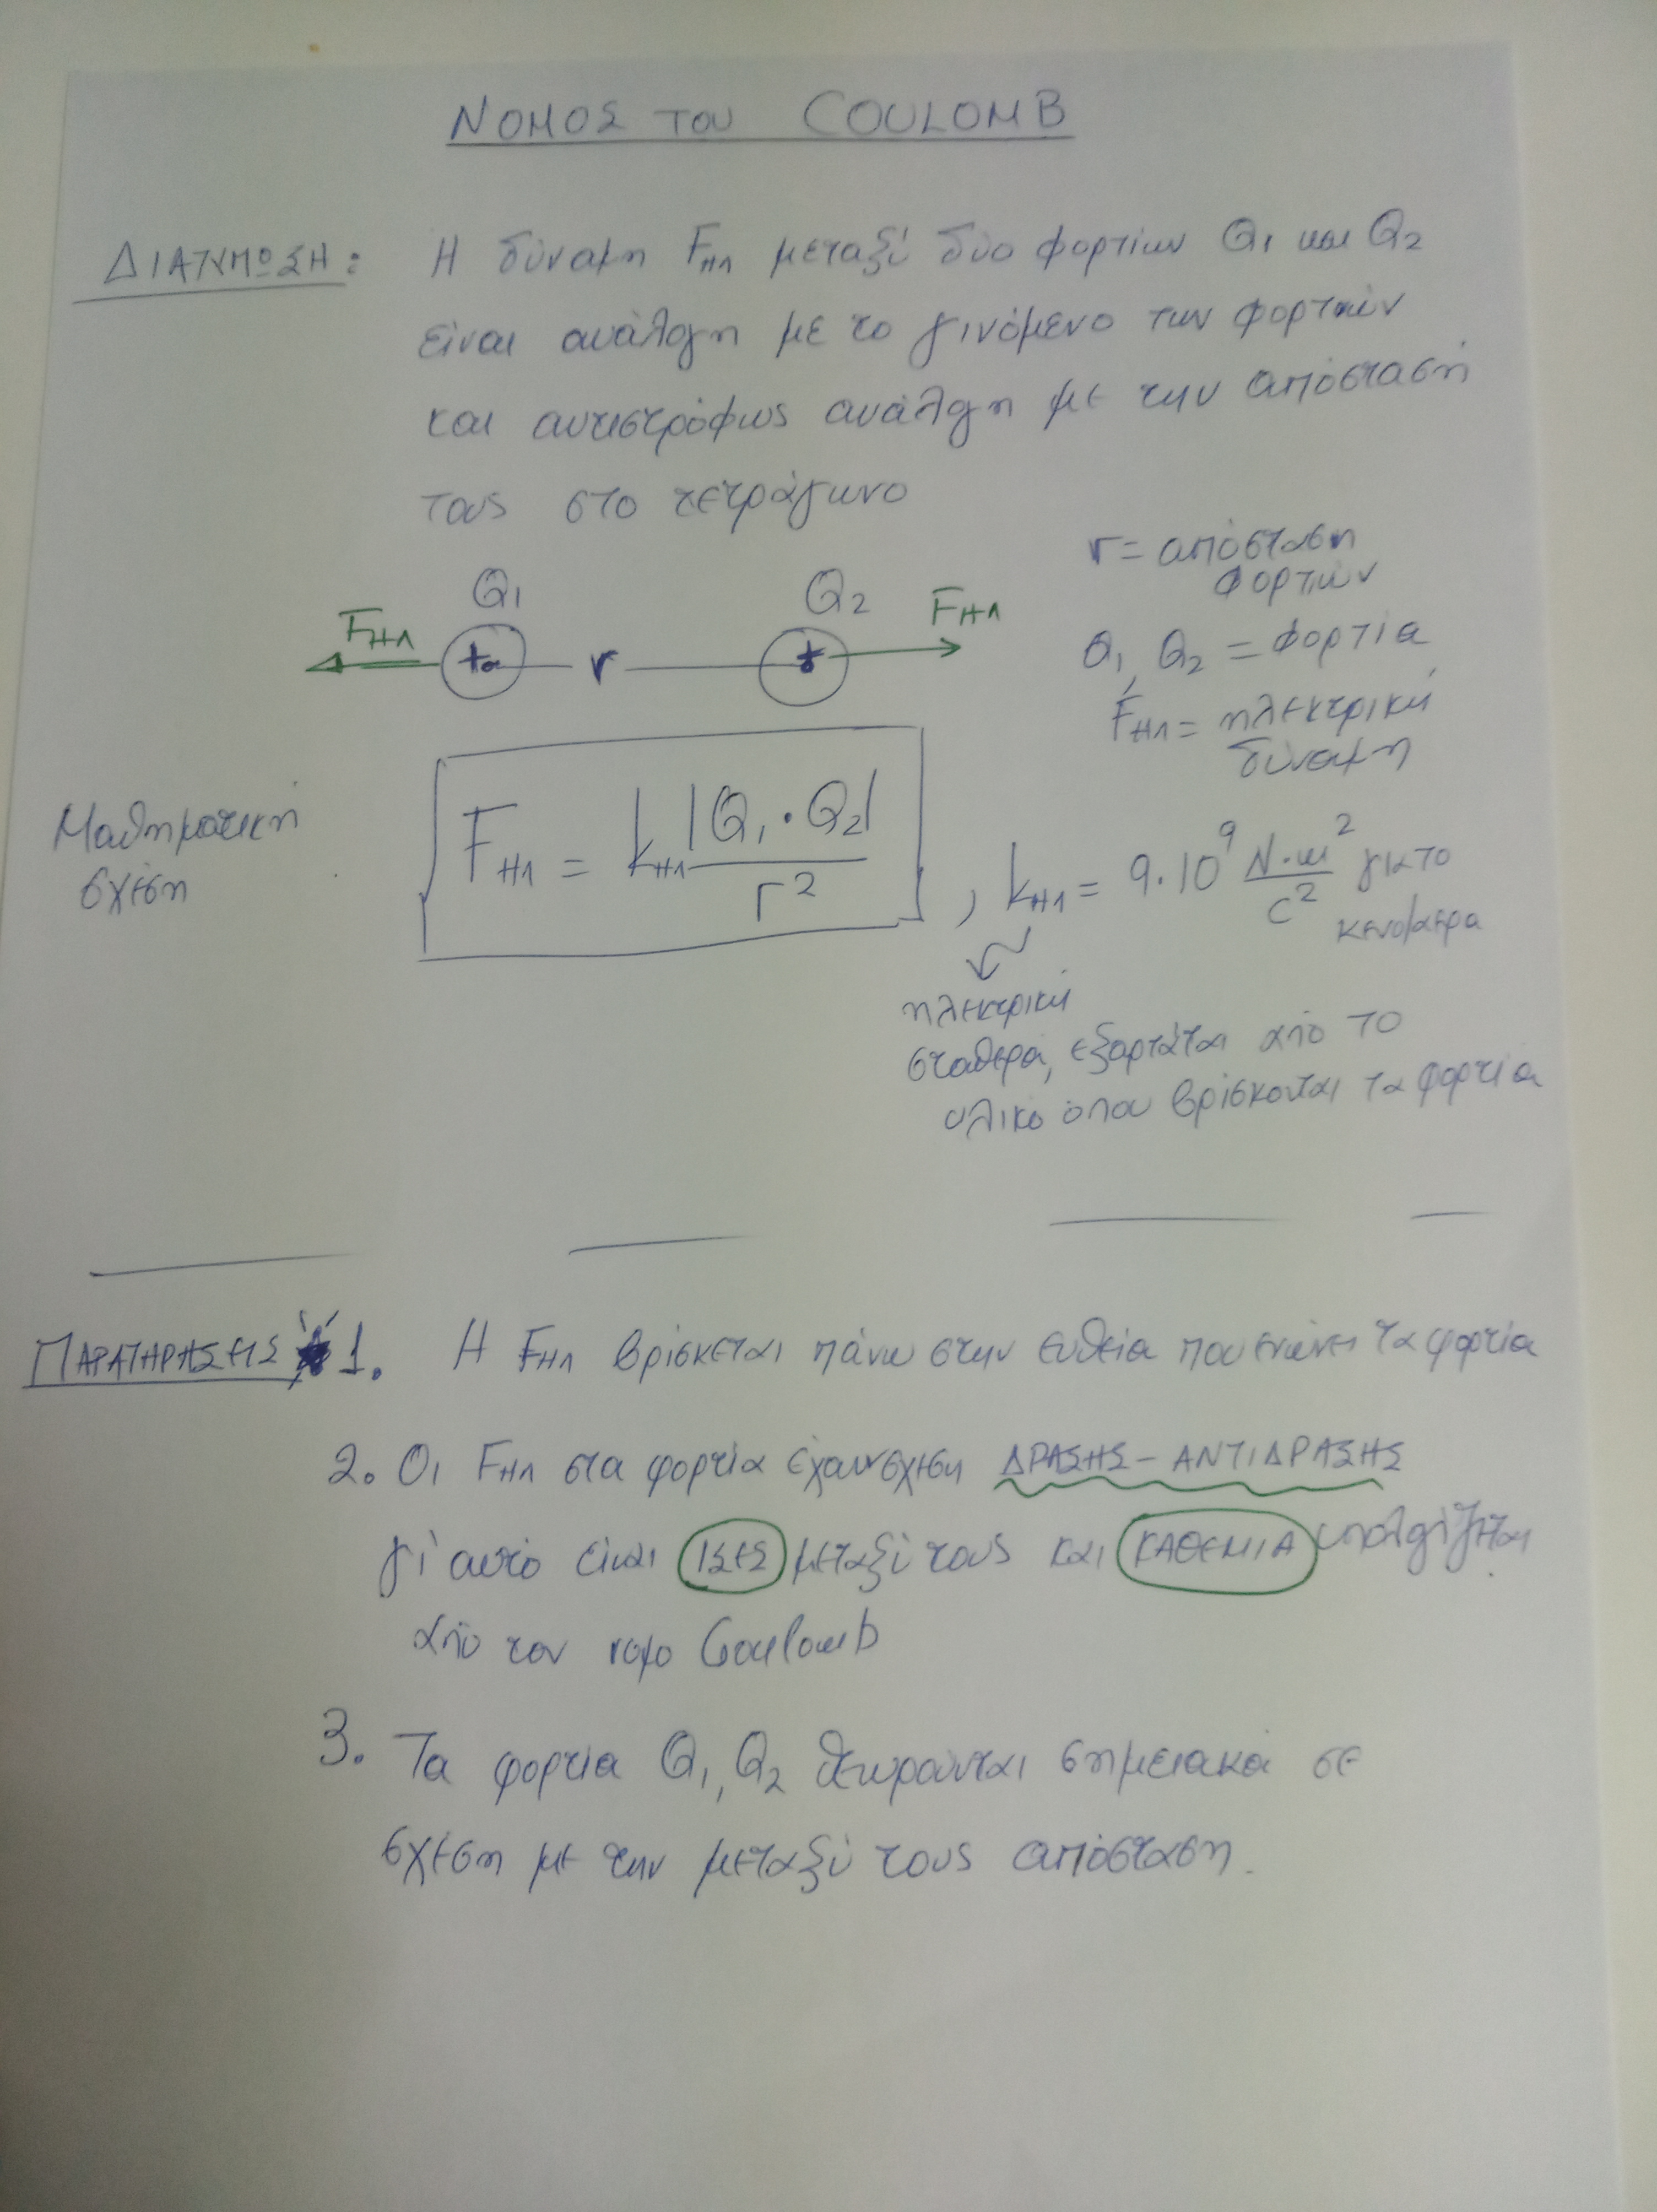 ΝΟΜΟΣ ΤΟΥ COULOMB
ΔΙΑΤΥΠΩΣΗ: Η δύναμη Fηλ μεταξύ δύο φορτίων Q₁ και Q₂
είναι ανάλογη με το γινόμενο των φορτιών
και αντιστρόφως ανάλογη με την απόστασή
τους στο τετράγωνο
r = απόσταση
φορτιών
Q₁ Q₂
Fηλ + r + Fηλ
Q₁, Q₂ = φορτία
Fηλ = ηλεκτρική
δύναμη
Μαθηματική
σχέση
Fηλ = kηλ |Q₁·Q₂| / r² , kηλ = 9·10⁹ N·m²/C² για το
κενό/αερα
ηλεκτρική
σταθερά, εξαρτάται από το
υλικό όπου βρίσκονται τα φορτία
ΠΑΡΑΤΗΡΗΣΕΙΣ 1. Η Fηλ βρίσκεται πάνω στην ευθεία που ενώνει τα φορτία
2. Οι Fηλ στα φορτία έχουν σχέση ΔΡΑΣΗΣ - ΑΝΤΙΔΡΑΣΗΣ
γι' αυτό είναι ΙΣΕΣ μεταξύ τους και ΚΑΘΕΜΙΑ υπολογίζεται
από τον νομο Coulomb
3. Τα φορτία Q₁, Q₂ θεωρούνται σημειακά σε
σχέση με την μεταξύ τους απόσταση.